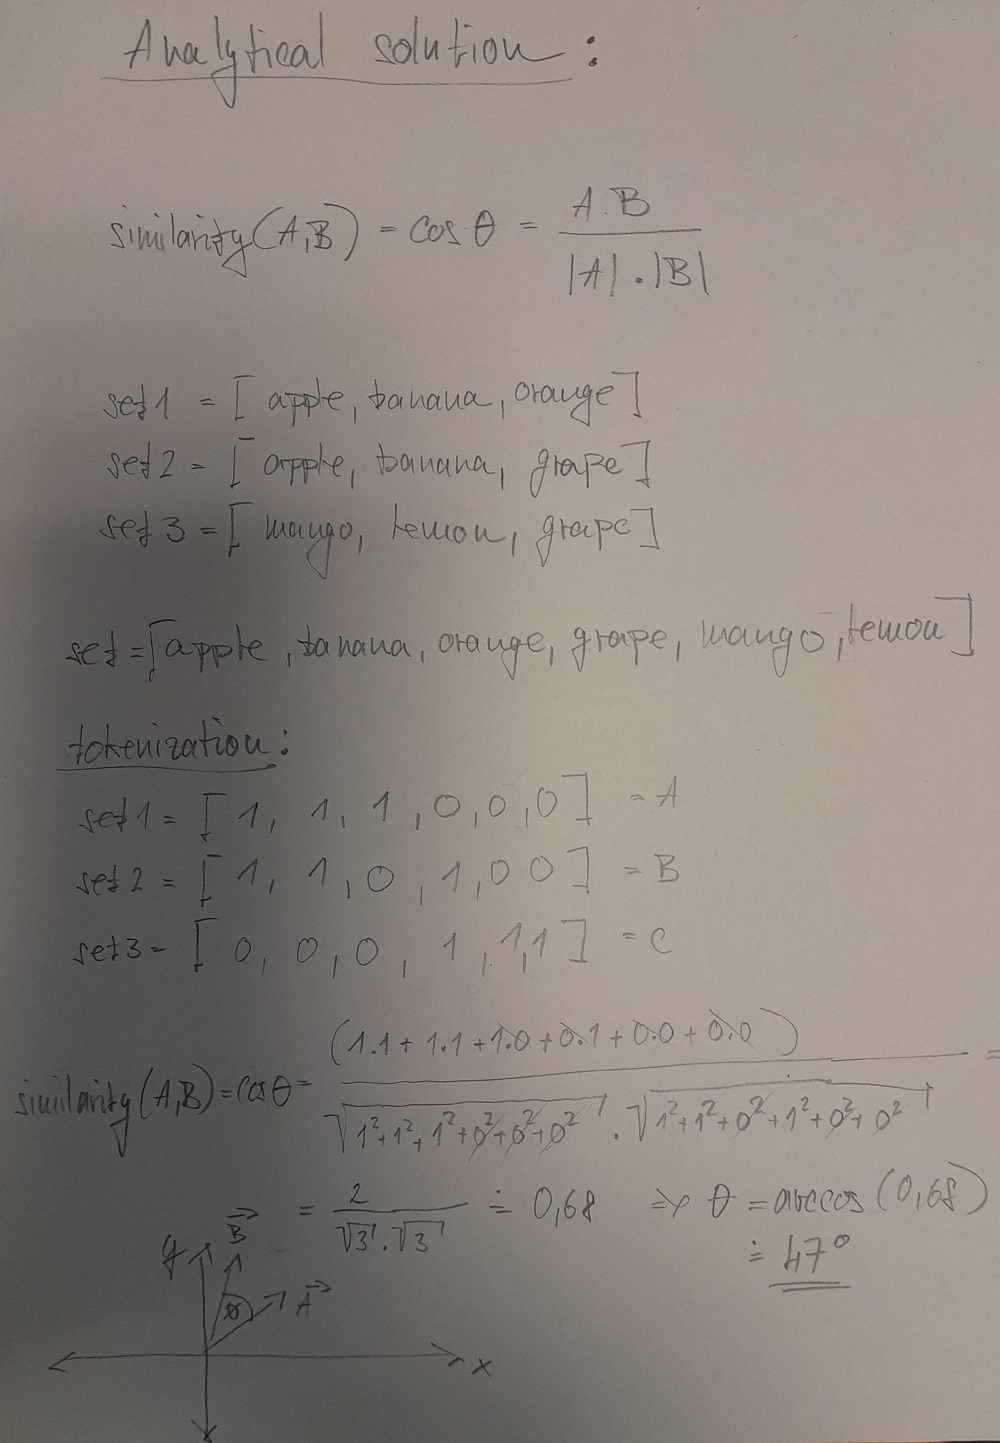 Analytical solution :
similarity(A,B) = cos θ = A.B / |A| . |B|
set1 = [ apple, banana, orange ]
set2 = [ apple, banana, grape ]
set3 = [ mango, lemon, grape ]
set = [ apple, banana, orange, grape, mango, lemon ]
tokenization :
set1 = [ 1, 1, 1, 0, 0, 0 ] = A
set2 = [ 1, 1, 0, 1, 0 0 ] = B
set3 = [ 0, 0, 0, 1, 1, 1 ] = C
similarity(A,B) = cos θ = (1.1 + 1.1 + 1.0 + 0.1 + 0.0 + 0.0) / √(1²+1²+1²+0²+0²+0²) . √(1²+1²+0²+1²+0²+0²) =
= 2 / √3 . √3 ≐ 0,68 => θ = arccos (0,68)
≐ 47°
y B
θ A
x